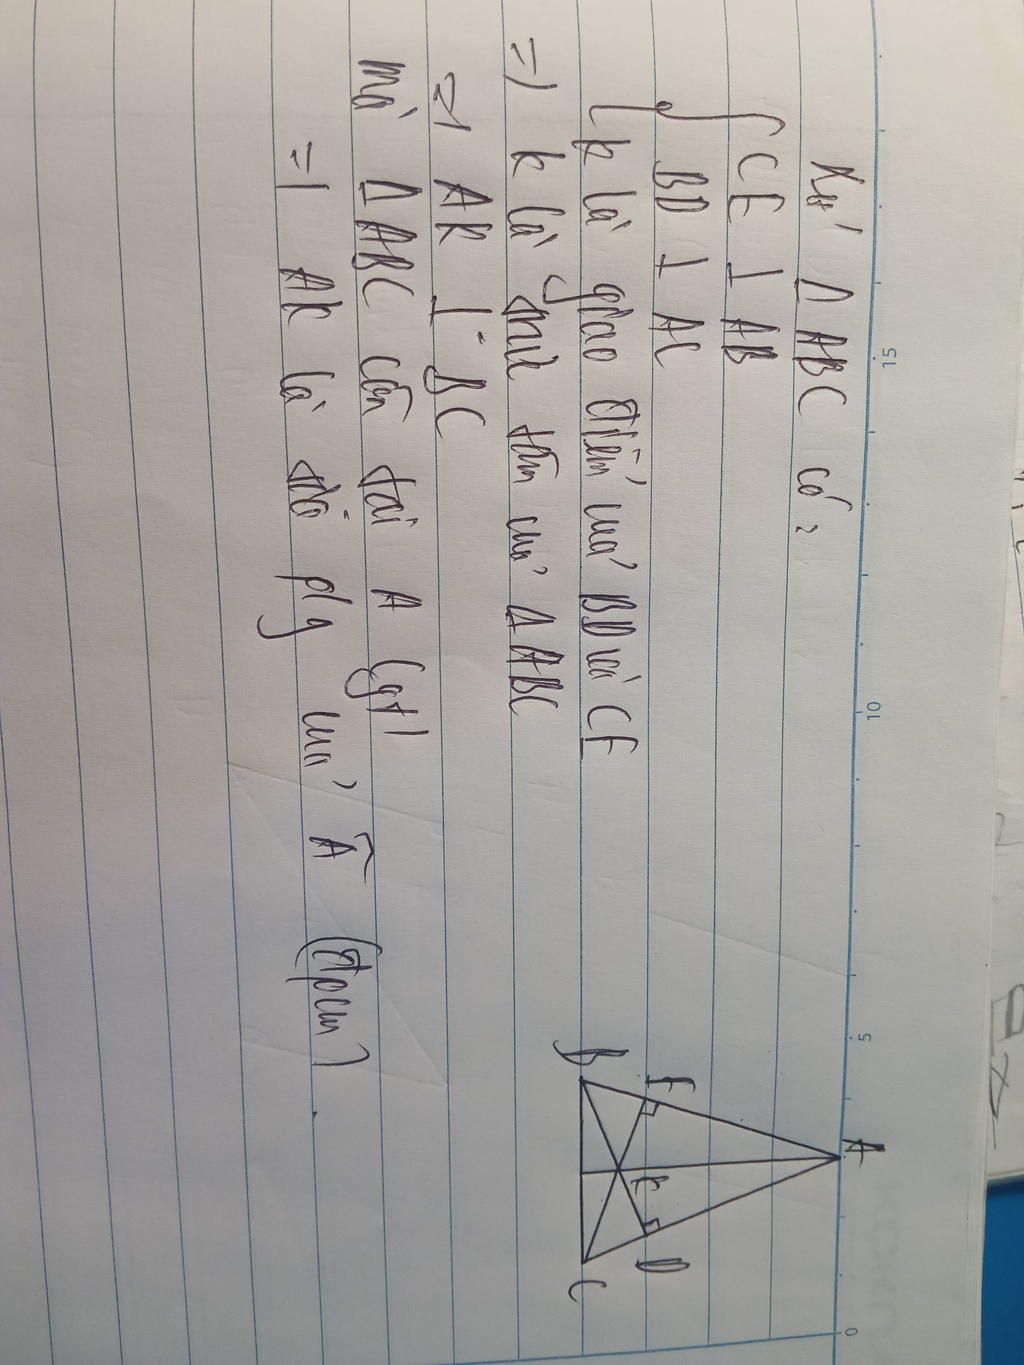 Xét Δ ABC có:
CE ⊥ AB
BD ⊥ AC
K là giao điểm của BD và CE
=) K là trực tâm của Δ ABC
=) AK ⊥ BC
mà Δ ABC cân tại A (gt)
=) AK là đg p/g của Â (đpcm)
A
E
D
K
B
C
0
5
10
15